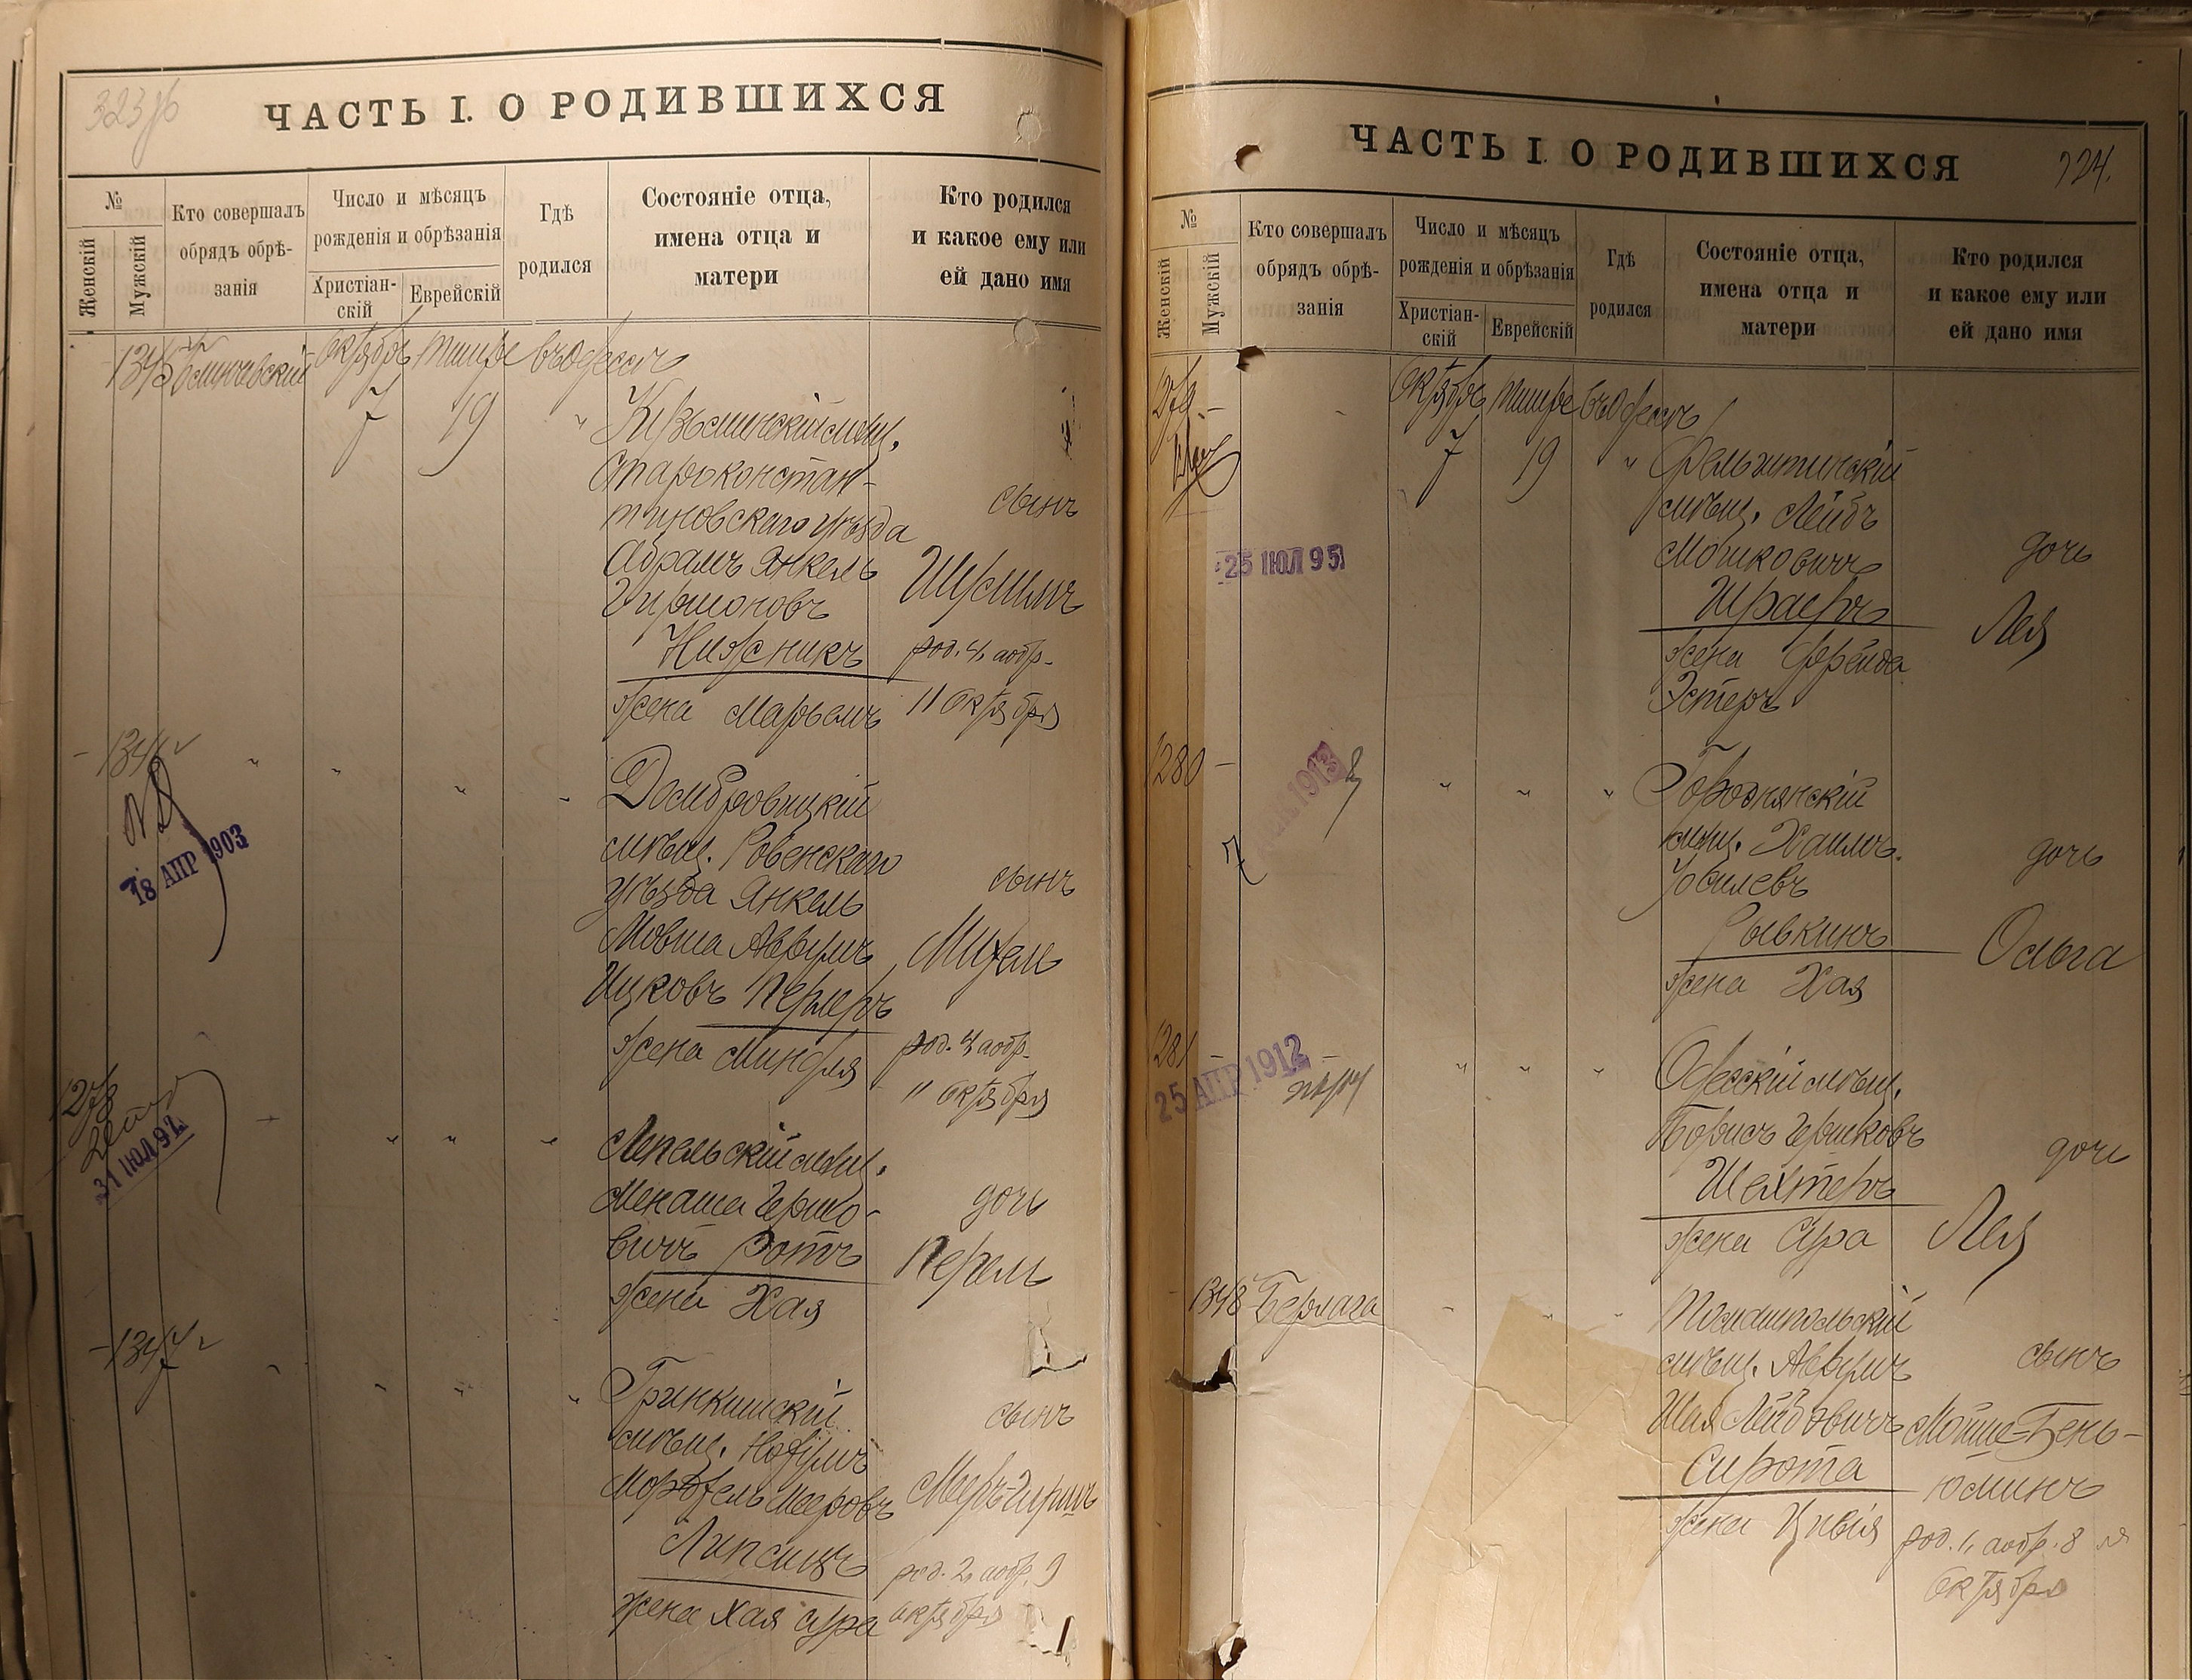 ЧАСТЬ I. О РОДИВШИХСЯ
№
Женскій
Мужскій
Кто совершалъ
обрядъ обрѣ-
занія
Число и мѣсяцъ
рожденія и обрѣзанія
Христіан-
скій
Еврейскій
Гдѣ
родился
Состояніе отца,
имена отца и
матери
Кто родился
и какое ему или
ей дано имя
1345
Октябрь Тишре въ Одессѣ
7 19 "
мѣщ.
Староконстан-
тиновскаго уѣзда
Абрамъ Янкель
Гиршоновъ
Нижникъ
жена Марьемъ
сынъ
род. 4, а обр.
11 Октября
1346
18 АПР 1903
" " " "
Домбровицкій
мѣщ. Ровенскаго
уѣзда Янкель
Мовша Аврумъ
Ицковъ Перлеръ
жена Миндля
сынъ
Михель
род. 4, а обр.
11 Октября
1278
31 ІЮЛ 92
" " "
Лепельскій мѣщ.
Менаша Гершко-
вичъ Ротъ
жена Хая
дочь
Перель
1347
" " " "
Гринкишскій
мѣщ. Нохумъ
Мордхель Мееровъ
Липсицъ
жена Хая Сура
сынъ
Меръ-Гиршъ
род. 2, а обр. 9
Октября
ЧАСТЬ I. О РОДИВШИХСЯ
324.
№
Женскій
Мужскій
Кто совершалъ
обрядъ обрѣ-
занія
Число и мѣсяцъ
рожденія и обрѣзанія
Христіан-
скій
Еврейскій
Гдѣ
родился
Состояніе отца,
имена отца и
матери
Кто родился
и какое ему или
ей дано имя
1279 -
Октябрь Тишре въ Одессѣ
7 19 "
25 ІЮЛ 95
Фельштинскій
мѣщ. Лейбъ
Мошковичъ
Шраеръ
жена Фрейда
Эстеръ
дочь
Лея
1280 -
1913
" " "
Городнянскій
мѣщ. Хаимъ
Іоселевъ
Рывкинъ
жена Хая
дочь
Ольга
1281 -
25 АПР 1912
" " "
Одесскій мѣщ.
Борисъ Гершковъ
Шехтеръ
жена Сура
дочь
Лея
1348 Берлага
" " "
Томашпольскій
мѣщ. Аврумъ
Шая Лейбовичъ
Сирота
жена Цивія
сынъ
Мойше-Бень-
юминъ
род. 1, а обр. 8
Октября